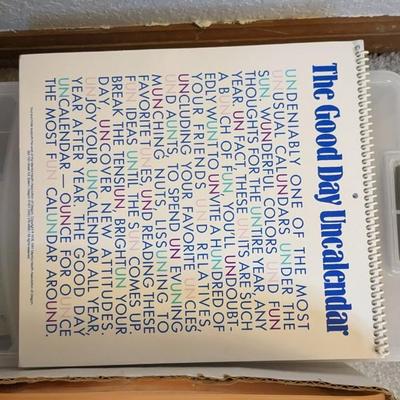 The Good Day Uncalendar
UNDENIABLY ONE OF THE MOST
UNUSUAL CALUNDARS UNDER THE
SUN. WUNDERFUL COLORS UND FUN
THOUGHTS FOR THE UNTIRE YEAR. ANY
YEAR. UN FACT THESE UNITS ARE SUCH
A BUNCH OF FUN, YOU'LL UNDOUBT-
EDLY WUNT TO UNVITE A HUNDRED OF
YOUR FRIENDS UND RELATIVES,
UNCLUDING YOUR FAVORITE UNCLES
UND AUNTS TO SPEND UN EVUNING
MUNCHING NUTS, LISSUNING TO
FAVORITE TUNES UND READING THESE
FUN IDEAS UNTIL THE SUN COMES UP.
BREAK THE TENSIUN, BRIGHTUN YOUR
DAY, UNCOVER NEW ATTITUDES.
UNJOY YOUR UNCALENDAR ALL YEAR,
YEAR AFTER YEAR. THE GOOD DAY
UNCALENDAR — OUNCE FOR OUNCE
THE MOST FUN CALUNDAR AROUND.